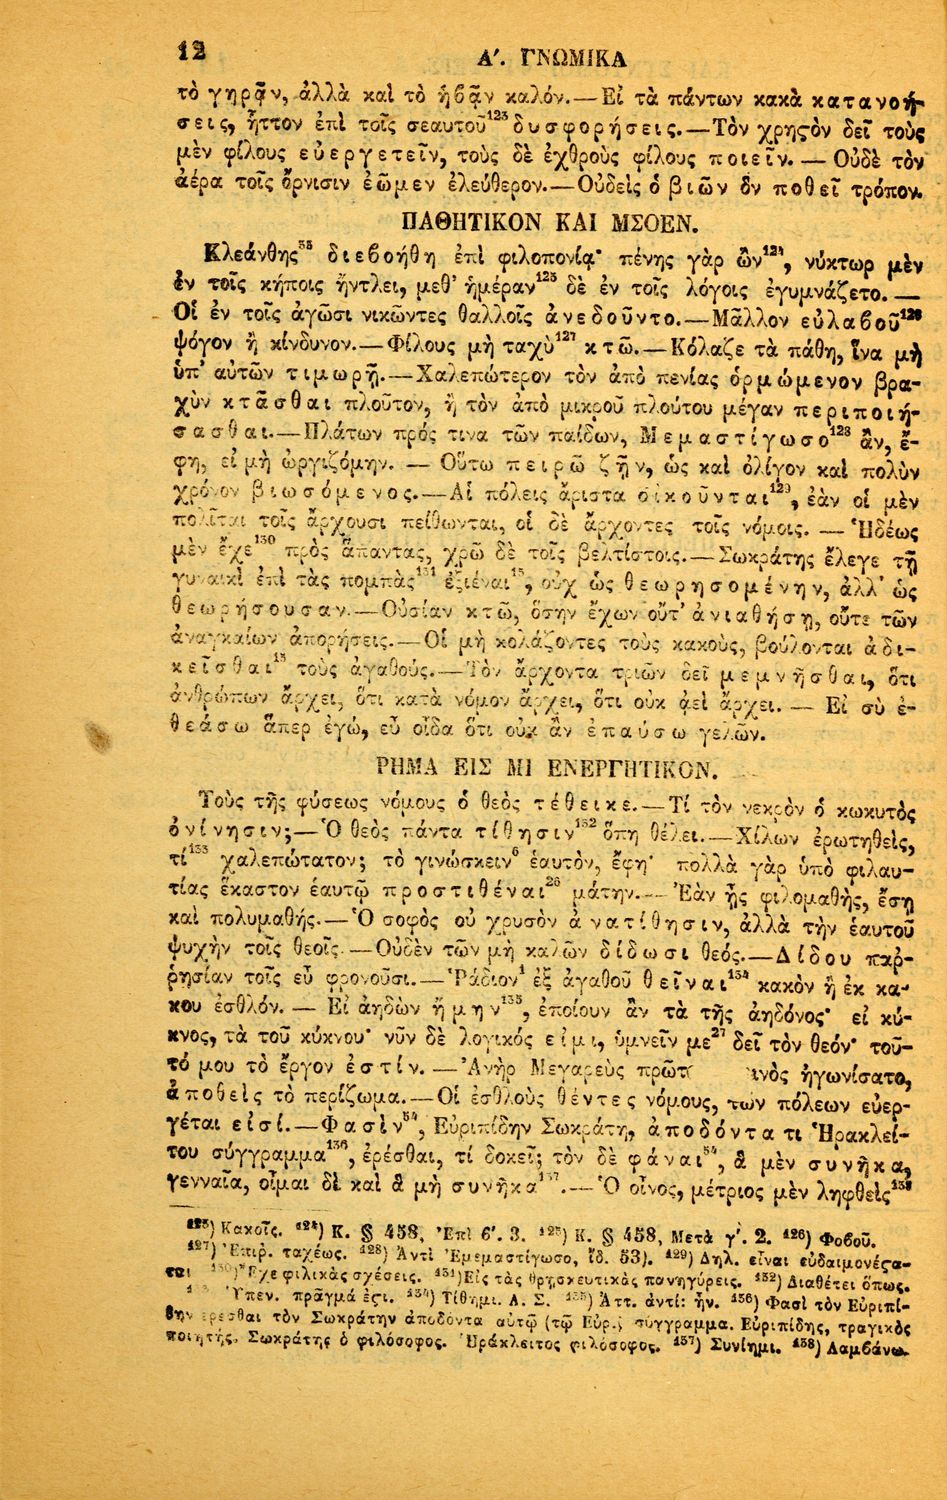 12
Α΄. ΓΝΩΜΙΚΑ
τὸ γηρᾷν, ἀλλὰ καὶ τὸ ἡβᾷν καλόν.—Εἰ τὰ πάντων κακὰ κατανοή-
σεις, ἧττον ἐπὶ τοῖς σεαυτοῦ¹²³ δυσφορήσεις.—Τὸν χρηστὸν δεῖ τοὺς
μὲν φίλους εὐεργετεῖν, τοὺς δὲ ἐχθροὺς φίλους ποιεῖν.—Οὐδὲ τὸν
ἀέρα τοῖς ὄρνισιν ἐῶμεν ἐλεύθερον.—Οὐδεὶς ὁ βιῶν ὃν ποθεῖ τρόπον.
ΠΑΘΗΤΙΚΟΝ ΚΑΙ ΜΣΟΕΝ.
Κλεάνθης³⁸ διεβοήθη ἐπὶ φιλοπονίᾳ· πένης γὰρ ὢν¹²⁴, νύκτωρ μὲν
ἐν τοῖς κήποις ἤντλει, μεθ' ἡμέραν¹²⁵ δὲ ἐν τοῖς λόγοις ἐγυμνάζετο.—
Οἱ ἐν τοῖς ἀγῶσι νικῶντες θαλλοῖς ἀνεδοῦντο.—Μᾶλλον εὐλαβοῦ¹²⁶
ψόγον ἢ κίνδυνον.—Φίλους μὴ ταχὺ¹²⁷ κτῶ.—Κόλαζε τὰ πάθη, ἵνα μὴ
ὑπ' αὐτῶν τιμωρῇ.—Χαλεπώτερον τὸν ἀπὸ πενίας ὁρμώμενον βρα-
χὺν κτᾶσθαι πλοῦτον, ἢ τὸν ἀπὸ μικροῦ πλούτου μέγαν περιποιή-
σασθαι.—Πλάτων πρός τινα τῶν παίδων, Μεμαστίγωσο¹²⁸ ἄν, ἔ-
φη, εἰ μὴ ὠργιζόμην.—Οὕτω πειρῶ ζῆν, ὡς καὶ ὀλίγον καὶ πολὺν
χρόνον βιωσόμενος.—Αἱ πόλεις ἄριστα οἰκοῦνται¹²⁹, ἐὰν οἱ μὲν
πολῖται τοῖς ἄρχουσι πείθωνται, οἱ δὲ ἄρχοντες τοῖς νόμοις.—Ἡδέως
μὲν ἔχε¹³⁰ πρὸς ἅπαντας, χρῶ δὲ τοῖς βελτίστοις.—Σωκράτης ἔλεγε τῇ
γυναικὶ ἐπὶ τὰς πομπὰς¹³¹ ἐξιέναι¹⁵, οὐχ ὡς θεωρησομένην, ἀλλ' ὡς
θεωρήσουσαν.—Οὐσίαν κτῶ, ὅσην ἔχων οὔτ' ἀνιαθήσῃ, οὔτε τῶν
ἀναγκαίων ἀπορήσεις.—Οἱ μὴ κολάζοντες τοὺς κακούς, βούλονται ἀδι-
κεῖσθαι¹⁵ τοὺς ἀγαθούς.—Τὸν ἄρχοντα τριῶν δεῖ μεμνῆσθαι, ὅτι
ἀνθρώπων ἄρχει, ὅτι κατὰ νόμον ἄρχει, ὅτι οὐκ ἀεὶ ἄρχει.—Εἰ σὺ ἐ-
θεάσω ἅπερ ἐγώ, εὖ οἶδα ὅτι οὐκ ἂν ἐπαύσω γελῶν.
ΡΗΜΑ ΕΙΣ ΜΙ ΕΝΕΡΓΗΤΙΚΟΝ.
Τοὺς τῆς φύσεως νόμους ὁ θεὸς τέθεικε.—Τί τὸν νεκρὸν ὁ κωκυτὸς
ὀνίνησιν;—Ὁ θεὸς πάντα τίθησιν¹³² ὅπη θέλει.—Χίλων ἐρωτηθείς,
τί¹³³ χαλεπώτατον; τὸ γινώσκειν⁶ ἑαυτὸν, ἔφη· πολλὰ γὰρ ὑπὸ φιλαυ-
τίας ἕκαστον ἑαυτῷ προστιθέναι²⁶ μάτην.—Ἐὰν ᾖς φιλομαθής, ἔσῃ
καὶ πολυμαθής.—Ὁ σοφὸς οὐ χρυσὸν ἀνατίθησιν, ἀλλὰ τὴν ἑαυτοῦ
ψυχὴν τοῖς θεοῖς.—Οὐδὲν τῶν μὴ καλῶν δίδωσι θεός.—Δίδου παρ-
ρησίαν τοῖς εὖ φρονοῦσι.—Ῥάδιον¹ ἐξ ἀγαθοῦ θεῖναι¹³⁴ κακὸν ἢ ἐκ κα-
κου ἐσθλόν.—Εἰ ἀηδὼν ἤμην¹³⁵, ἐποίουν ἂν τὰ τῆς ἀηδόνος· εἰ κύ-
κνος, τὰ τοῦ κύκνου· νῦν δὲ λογικός εἰμι, ὑμνεῖν με²⁷ δεῖ τὸν θεόν· τοῦ-
τό μου τὸ ἔργον ἐστίν.—Ἀνὴρ Μεγαρεὺς ἠγωνίσατο,
ἀποθεὶς τὸ περίζωμα.—Οἱ ἐσθλοὺς θέντες νόμους, τῶν πόλεων εὐερ-
γέται εἰσί.—Φασὶν⁵⁴, Εὐριπίδην Σωκράτη, ἀποδόντα τι Ἡρακλεί-
του σύγγραμμα¹³⁶, ἐρέσθαι, τί δοκεῖ; τὸν δὲ φάναι⁵⁴, ἃ μὲν συνῆκα,
γενναῖα, οἶμαι δὲ καὶ ἃ μὴ συνῆκα¹³⁷.—Ὁ οἶνος, μέτριος μὲν ληφθεὶς¹³⁸
¹²³) Κακοῖς. ¹²⁴) Κ. § 458, Ἐπὶ 6'. 3. ¹²⁵) Κ. § 458, Μετὰ γ'. 2. ¹²⁶) Φοβοῦ.
¹²⁷) Ἐπιρ. ταχέως. ¹²⁸) Ἀντὶ Ἐμεμαστίγωσο, ἰδ. 53). ¹²⁹) Δηλ. εἶναι εὐδαιμονέστα-
ται ¹³⁰) Ἔχε φιλικὰς σχέσεις. ¹³¹) Εἰς τὰς θρησκευτικὰς πανηγύρεις. ¹³²) Διαθέτει ὅπως.
Ὑπεν. πρᾶγμά ἐστι. ¹³⁴) Τίθημι. Α. Σ. ¹³⁵) Ἀττ. ἀντί: ἦν. ¹³⁶) Φασὶ τὸν Εὐριπί-
δην ἐρέσθαι τὸν Σωκράτην ἀποδόντα αὐτῷ (τῷ Εὐρ.) σύγγραμμα. Εὐριπίδης, τραγικὸς
ποιητής, Σωκράτης ὁ φιλόσοφος. Ἡράκλειτος φιλόσοφος. ¹³⁷) Συνίημι. ¹³⁸) Λαμβάνω.